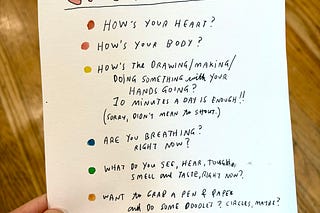 HOW'S YOUR HEART?
HOW'S YOUR BODY?
HOW'S THE DRAWING/MAKING/
DOING SOMETHING with YOUR
HANDS GOING?
10 MINUTES A DAY IS ENOUGH!!
(SORRY, DIDN'T MEAN TO SHOUT.)
ARE YOU BREATHING?
RIGHT NOW?
WHAT DO YOU SEE, HEAR, TOUCH,
SMELL and TASTE, RIGHT NOW?
WANT to GRAB A PEN & PAPER
and DO SOME DOODLES? CIRCLES, MAYBE?